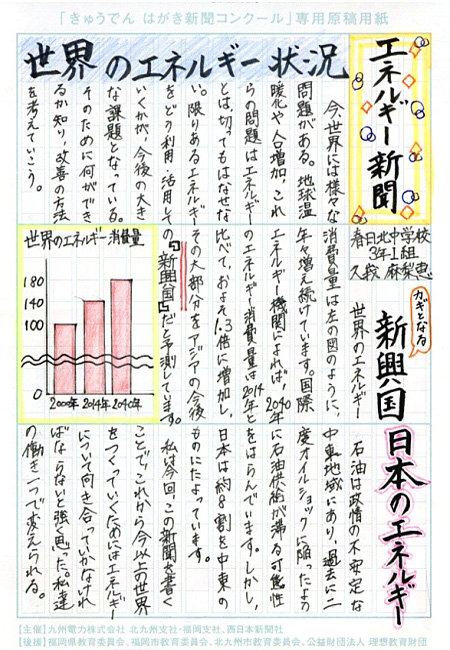 「きゅうでん はがき新聞コンクール」専用原稿用紙
エネルギー新聞
春日北中学校
3年1組
久我 麻梨恵
世界のエネルギー状況
今、世界には様々な
問題がある。地球温
暖化や人口増加、これ
らの問題はエネルギー
とは、切ってもはなせな
い。限りあるエネルギー
をどう利用・活用して
いくかが、今後の大き
な課題となっている。
そのために何ができ
るか知り、改善の方法
を考えていこう。
カギとなる
新興国
世界のエネルギー
消費量は左の図のように、
年々増え続けています。国際
エネルギー機関によれば、2040年
のエネルギー消費量は2014年と
比べて、およそ1.3倍に増加し、
その大部分をアジアの今後
の「新興国」だと予測しています。
世界のエネルギー消費量
180
140
100
0
2000年 2014年 2040年
日本のエネルギー
石油は政情の不安定な
中東地域にあり、過去に二
度オイルショックに陥ったよう
に石油供給が滞る可能性
をはらんでいます。しかし、
日本は約8割を中東の
ものにたよっています。
私は今回、この新聞を書く
ことで、これから今以上の世界
をつくっていくためにはエネルギー
について向き合っていかなけれ
ばならないと強く思った。私達
の働き一つで変えられる。
【主催】九州電力株式会社 北九州支社・福岡支社、西日本新聞社
【後援】福岡県教育委員会、福岡市教育委員会、北九州市教育委員会、公益財団法人 理想教育財団